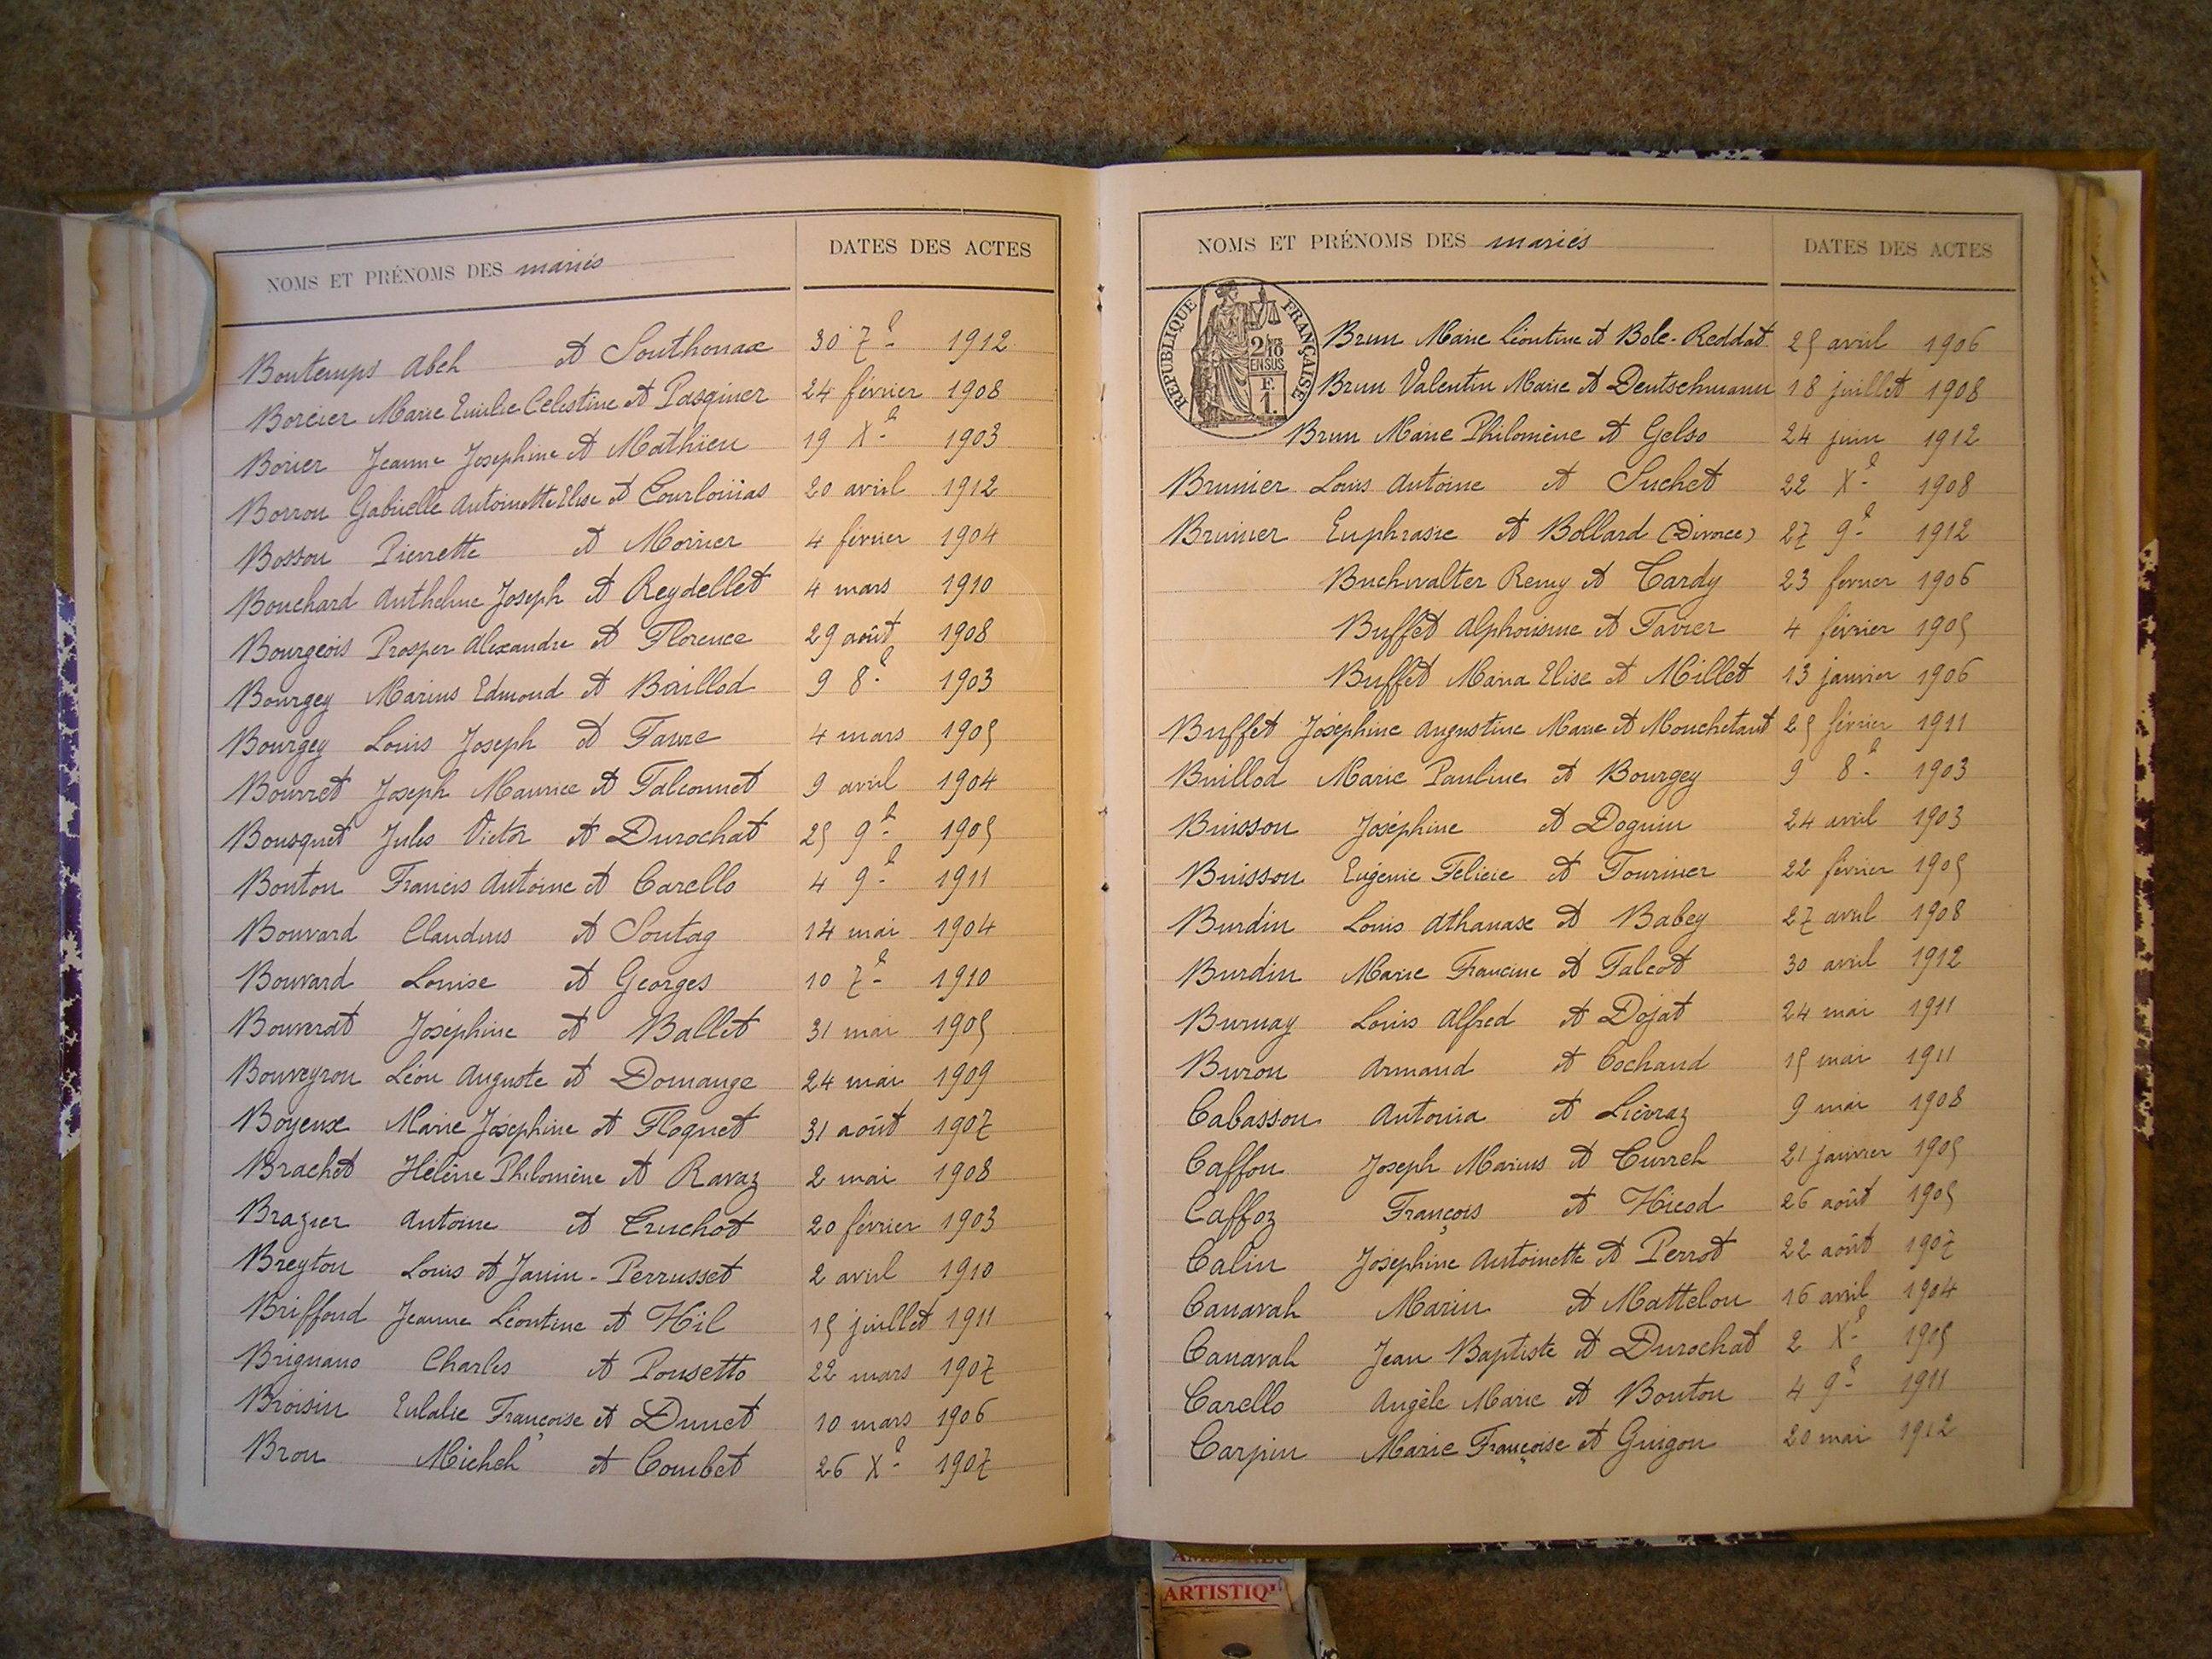 NOMS ET PRÉNOMS DES mariés DATES DES ACTES
Boutemps Abel et Southonax 30 7e 1912
Borcier Marie Emilie Celestine et Pasquier 24 février 1908
Borier Jeanne Josephine et Mathieu 19 Xe 1903
Borron Gabrielle Antoinette Elise et 20 avril 1912
Bosson Pierrette et Morier 4 février 1904
Bouchard Anthelme Joseph et Reydellet 4 mars 1910
Bourgeois Prosper Alexandre et Florence 29 août 1908
Bourgey Marius Edmond et Buillod 9 8e 1903
Bourgey Louis Joseph et Favre 4 mars 1905
Bourret Joseph Maurice et Falconnet 9 avril 1904
Bousquet Jules Victor et Durochat 25 9e 1905
Bouton Francis Antoine et Carello 4 9e 1911
Bouvard Claudius et Soutag 14 mai 1904
Bouvard Louise et Georges 10 7e 1910
Bouverat Joséphine et Ballet 31 mai 1905
Bouveyron Léon Auguste et Domange 24 mai 1909
Boyeux Marie Joséphine et Floquet 31 août 1907
Brachet Hélène Philomène et Ravaz 2 mai 1908
Brazier Antoine et Cruchot 20 février 1903
Breyton Louis et Janin-Perrusset 2 avril 1910
Briffoud Jeanne Léontine et Hil 15 juillet 1911
Brignano Charles et Ponsetto 22 mars 1907
Broisin Eulalie Françoise et Dunet 10 mars 1906
Bron Michel et Combet 26 Xe 1907
NOMS ET PRÉNOMS DES mariés DATES DES ACTES
RÉPUBLIQUE FRANÇAISE
2/10 EN SUS
F. 1.
Brun Marie Léontine et Bole-Reddat 25 avril 1906
Brun Valentin Marie et Deutschmann 18 juillet 1908
Brun Marie Philomène et Gelso 24 juin 1912
Brunier Louis Antoine et Suchet 22 Xe 1908
Brunier Euphrasie et Bollard (Divorce) 27 9e 1912
Buchwalter Remy et Cardy 23 fevrier 1906
Buffet Alphonsine et Tavier 4 février 1905
Buffet Maria Elise et Millet 13 janvier 1906
Buffet Joséphine Augustine Marie et Mouchetant 25 février 1911
Buillod Marie Pauline et Bourgey 9 8e 1903
Buisson Joséphine et Doguin 24 avril 1903
Buisson Eugénie Felicie et Fournier 22 février 1905
Burdin Louis Athanase et Babey 27 avril 1908
Burdin Marie Francine et Falcot 30 avril 1912
Burnay Louis Alfred et Dojat 24 mai 1911
Buron Armand et Cochand 15 mai 1911
Cabasson Antonia et Liévraz 9 mai 1908
Caffon Joseph Marius et Currel 21 janvier 1905
Caffoz François et Hicod 26 août 1905
Calin Joséphine Antoinette et Perrot 22 août 1907
Canaval Marin et Mattelon 16 avril 1904
Canaval Jean Baptiste et Durochat 2 Xe 1905
Carello Angèle Marie et Bouton 4 9e 1911
Carpin Marie Françoise et Guigon 20 mai 1912
ARTISTIQ